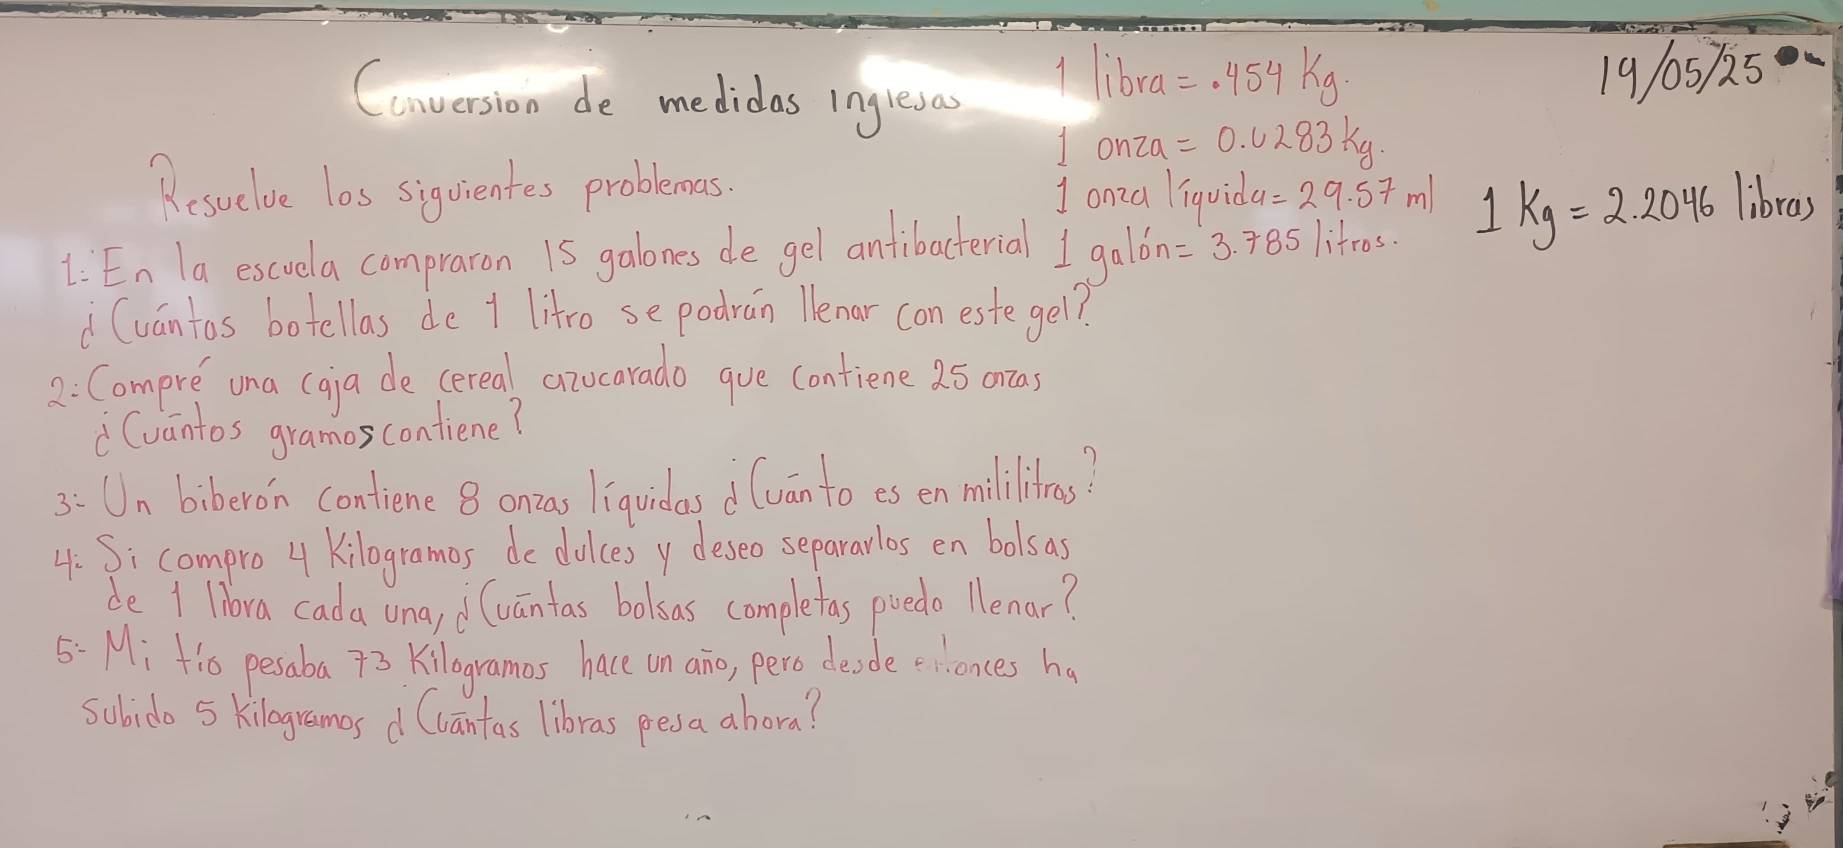 Conversion de medidas inglesas
19/05/25
1 libra = .454 Kg.
1 onza = 0.0283 kg.
1 onza líquida = 29.57 ml
1 galón = 3.785 litros.
1 Kg = 2.2046 libras
Resuelve los siguientes problemas.
1.- En la escuela compraron 15 galones de gel antibacterial
¿Cuántas botellas de 1 litro se podrán llenar con este gel?
2.- Compré una caja de cereal azucarado que contiene 25 onzas
¿Cuántos gramos contiene?
3.- Un biberón contiene 8 onzas líquidas ¿Cuánto es en mililitros?
4.- Si compro 4 Kilogramos de dulces y deseo separarlos en bolsas
de 1 libra cada una, ¿Cuántas bolsas completas puedo llenar?
5.- Mi tío pesaba 73 Kilogramos hace un año, pero desde entonces ha
subido 5 kilogramos ¿Cuántas libras pesa ahora?